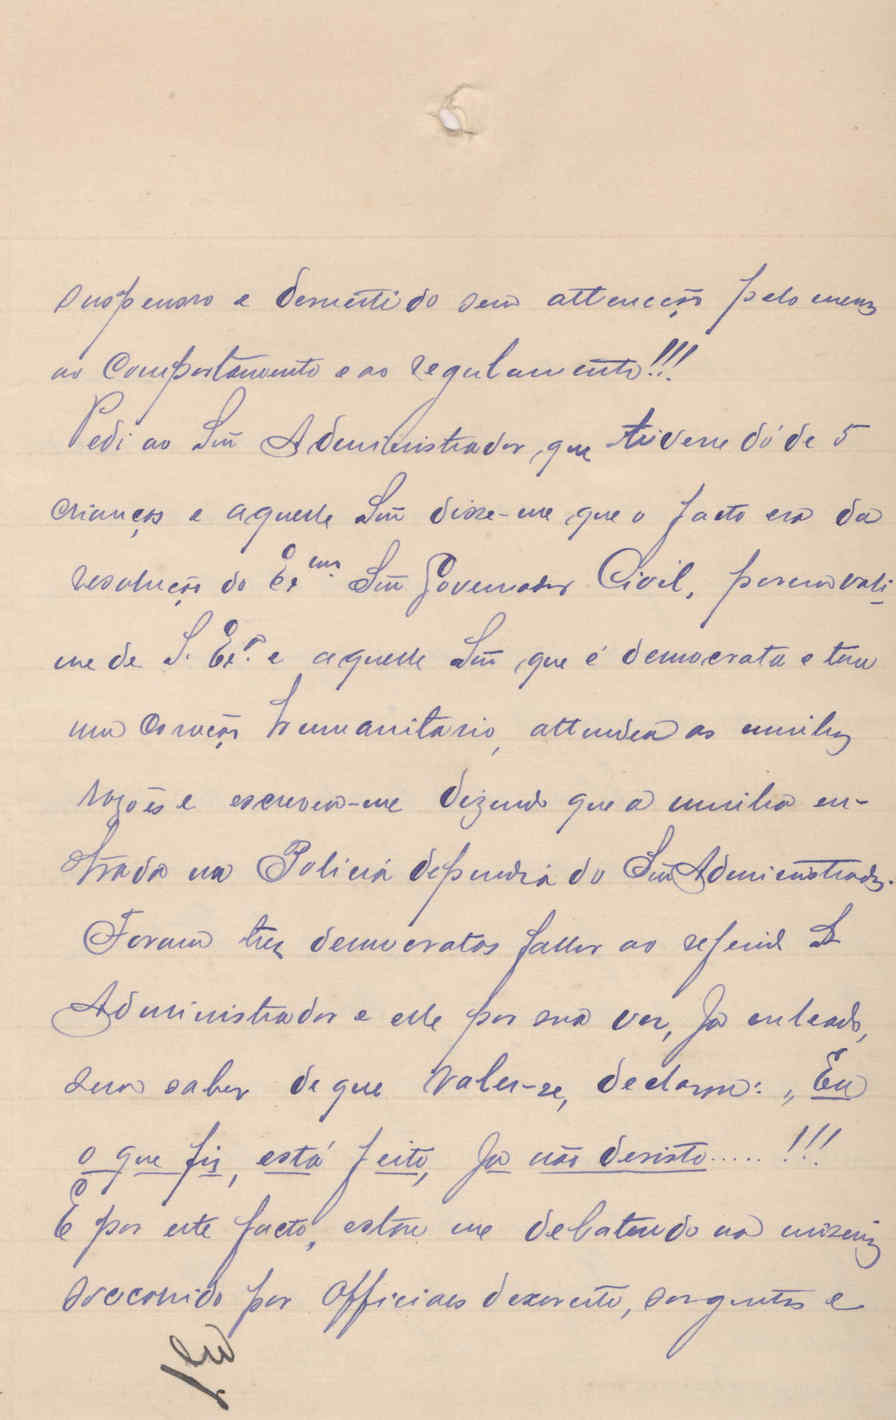 suspenso e demetido sem attenção pelo menos
ao Comportamento e ao regulamento!!!
Pedi ao Snr Administrador, que tivesse dó de 5
crianças e aquelle Snr disse-me que o facto era da
resolução do Exmo. Snr Governador Civil, porem vali-
me de S. Exª. e aquelle Snr que é democrata e tem
um coração humanitario, attendeu as minhas
rasões e escreveu-me dizendo que a minha en-
trada na Policia dependia do Snr Administrador.
Foram tres democratas fallar ao referido Sr
Administrador e elle por sua vez, ja enleado,
sem saber de que valer-se, declarou: „Eu
o que fiz, está feito, Ja não desisto..... !!!
E por este facto, estou me debatendo na miseria
soccorrido por Officiaes dexercito, sargentos e